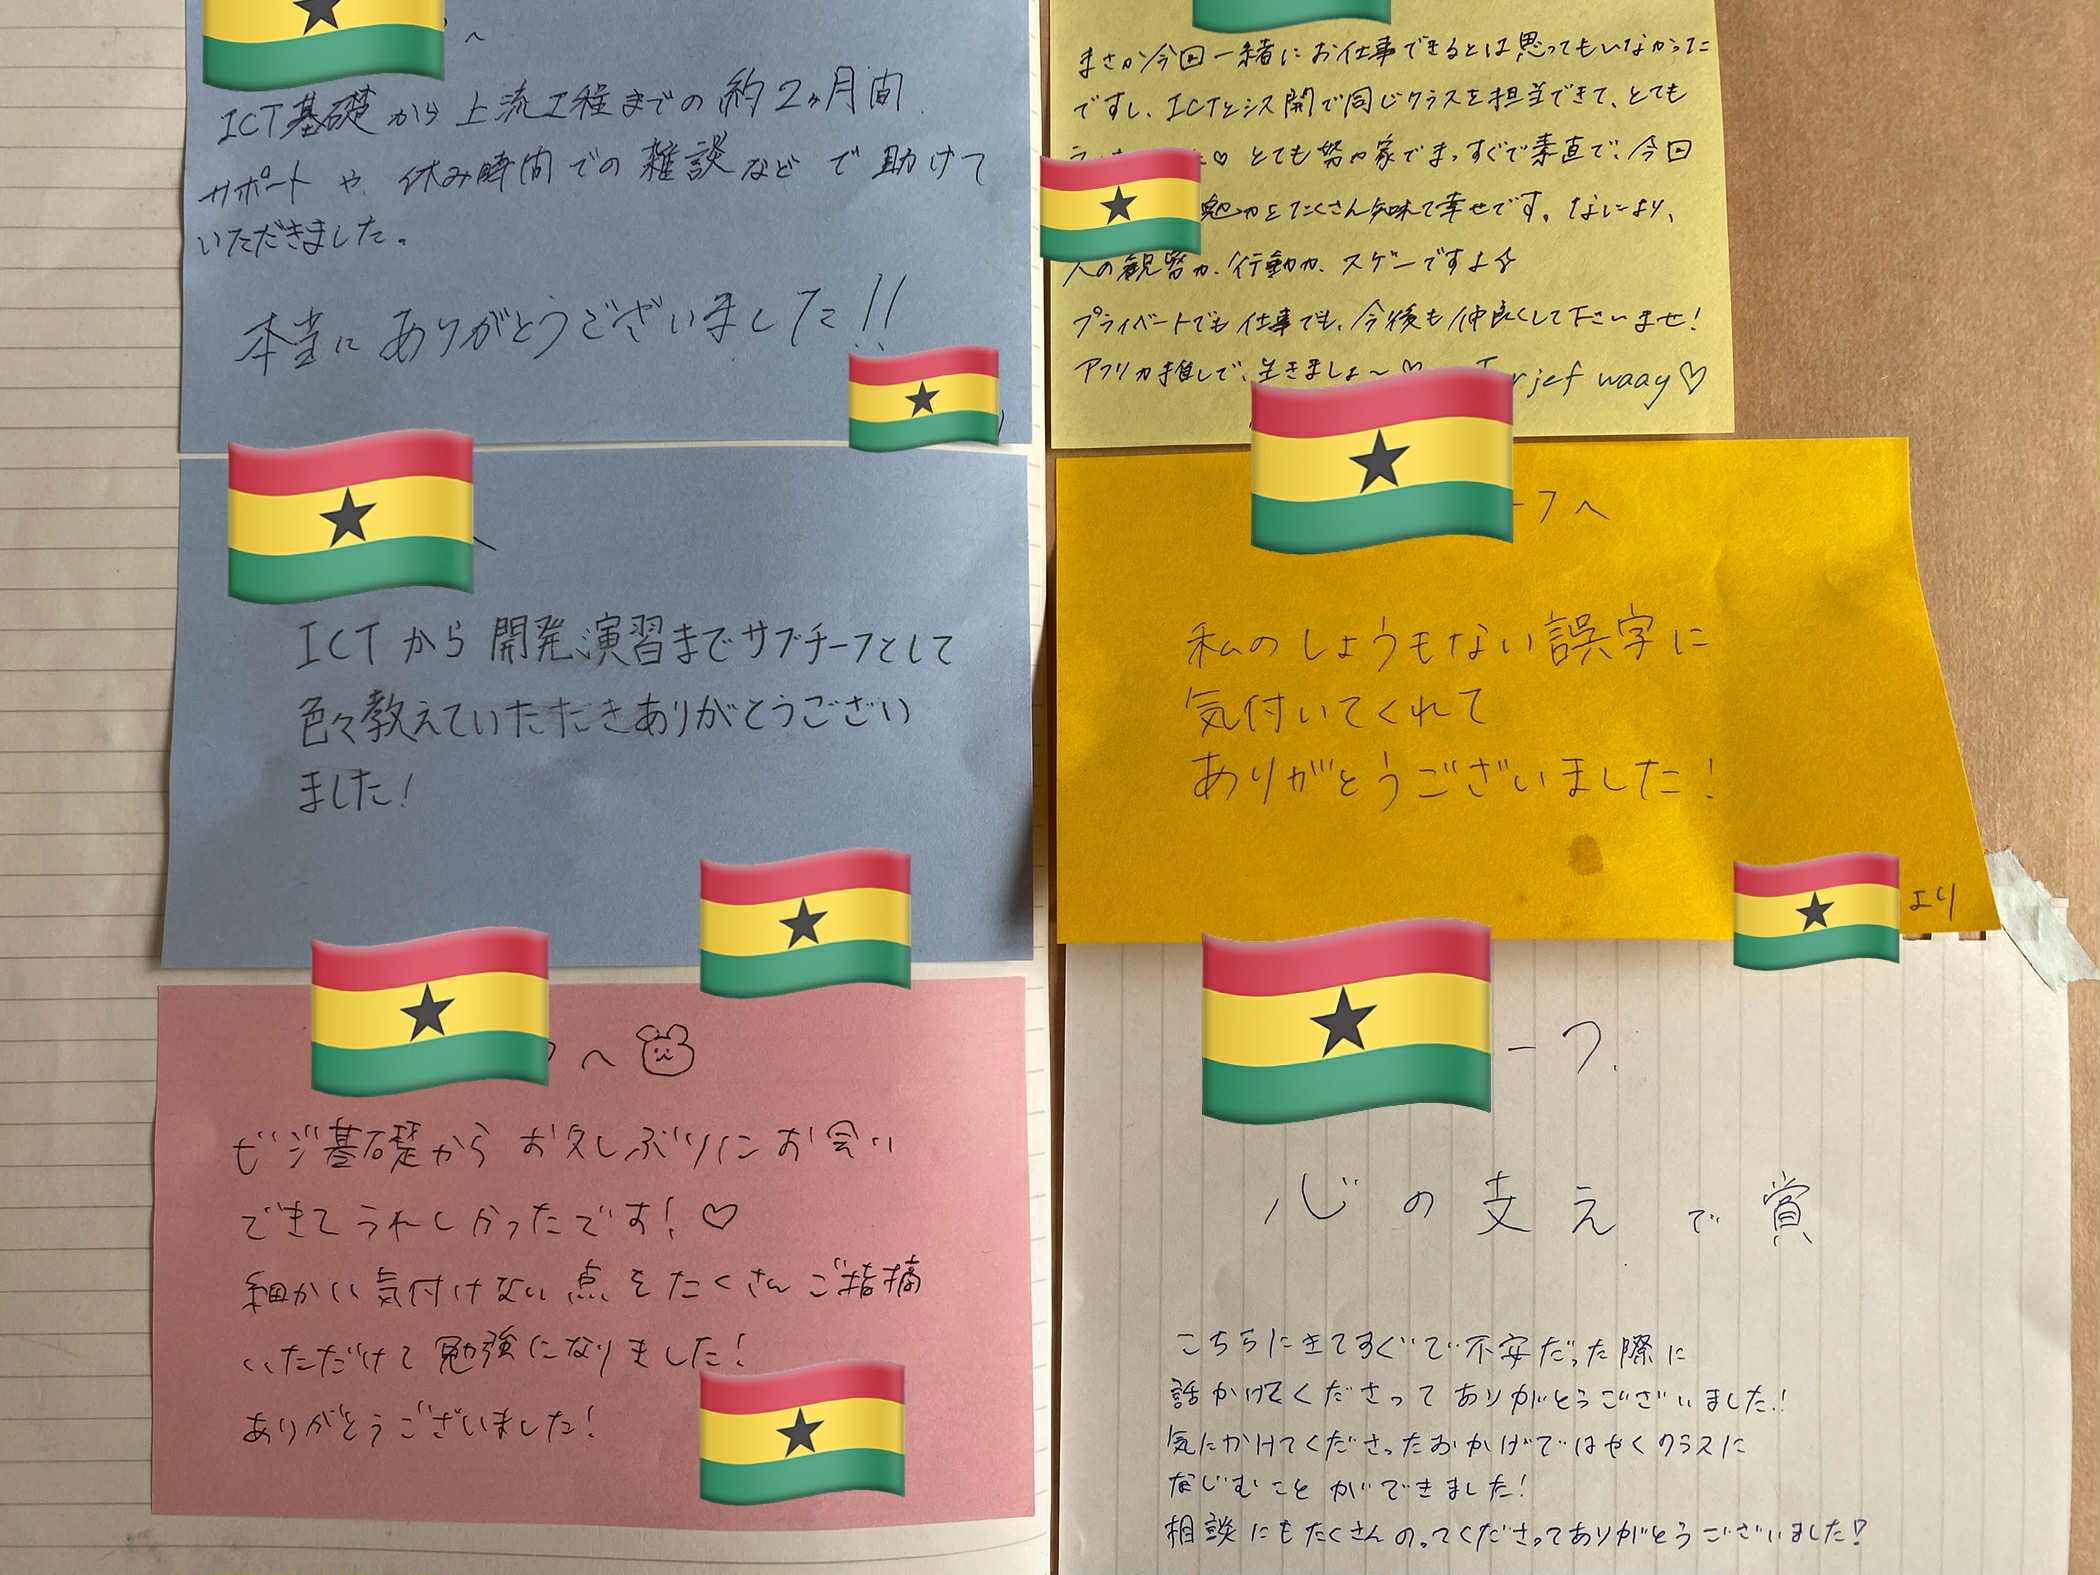 へ
ICT基礎から上流工程までの約2ヶ月間
サポートや休み時間での雑談などで助けて
いただきました。
本当にありがとうございました!!
へ
ICTから開発演習までサブチーフとして
色々教えていただきありがとうござい
ました!
へ
ビジ基礎からお久しぶりにお会い
できてうれしかったです!♡
細かい気付けない点をたくさんご指摘
いただけて勉強になりました!
ありがとうございました!
まさか今回一緒にお仕事できるとは思ってもいなかった
ですし、ICTとシス開で同じクラスを担当できて、とても
♡とても努力家でまっすぐで素直で、今回
魅力をたくさん知れて幸せです。なにより、
人の観察力、行動力、スゲーですよ☆
プライベートでも仕事でも、今後も仲良くして下さいませ!
アフリカ推しで、生きましょ〜♡ jef waay♡
ーフへ
私のしょうもない誤字に
気付いてくれて
ありがとうございました!
より
ーフ
心の支えで賞
こちらにきてすぐで不安だった際に
話かけてくださってありがとうございました!
気にかけてくださったおかげではやくクラスに
なじむことができました!
相談にもたくさんのってくださってありがとうございました!